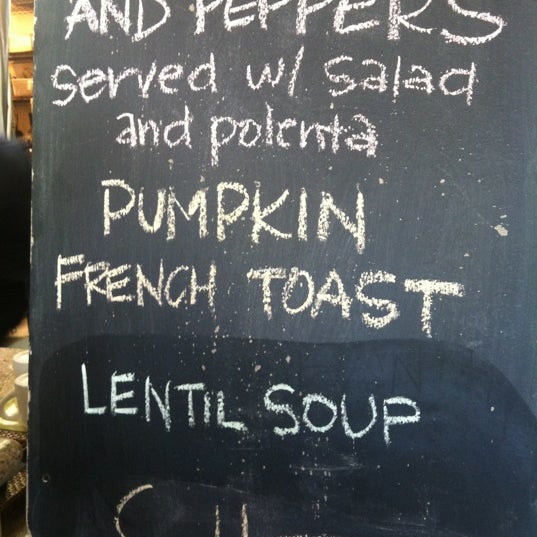 AND PEPPERS
served w/ salad
and polenta
PUMPKIN
FRENCH TOAST
LENTIL SOUP